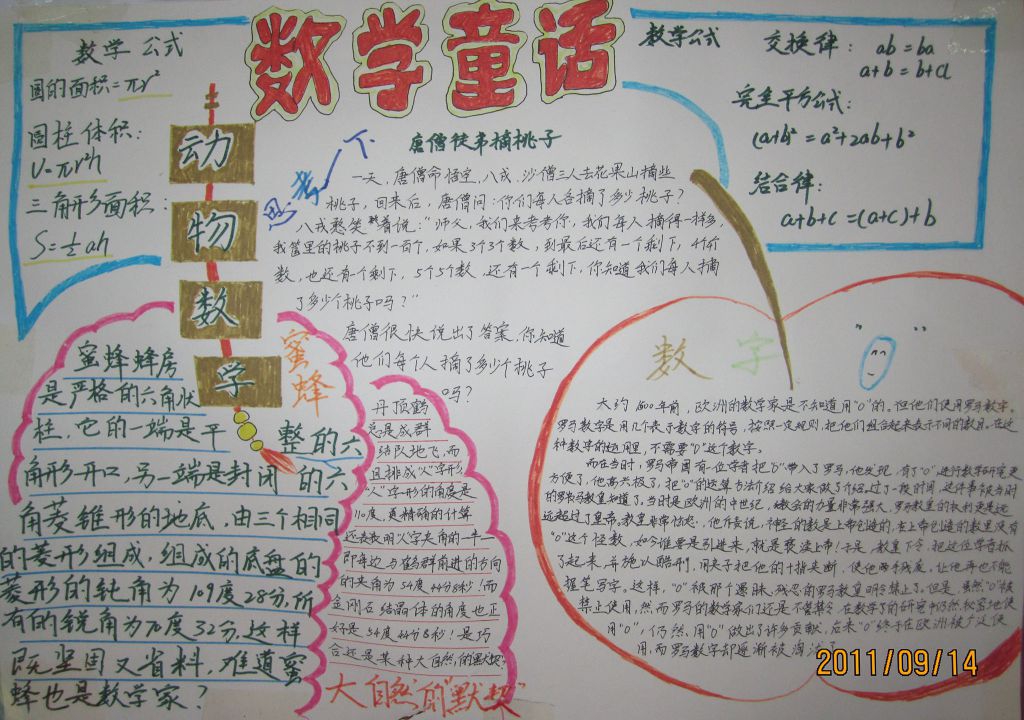 数学童话
数学公式
圆的面积=πr²
圆柱体积:
V=πr²h
三角形面积:
S=½ah
动
物
数
学
思考一下
唐僧徒弟摘桃子
一天,唐僧命悟空,八戒,沙僧三人去花果山摘些
桃子,回来后,唐僧问:你们每人各摘了多少桃子?
八戒憨笑着说:“师父,我们来考考你,我们每人摘得一样多,
我筐里的桃子不到一百个,如果3个3个数,到最后还有一个剩下,4个4个
数,也还有一个剩下,5个5个数,还有一个剩下,你知道我们每人摘
了多少个桃子吗?”
唐僧很快说出了答案,你知道
他们每个人摘了多少个桃子
吗?
数学公式
交换律:ab=ba
a+b=b+a
完全平方公式:
(a+b)²=a²+2ab+b²
结合律:
a+b+c=(a+c)+b
蜜蜂
蜜蜂蜂房
是严格的六角状
柱,它的一端是平整的六
角形开口,另一端是封闭的六
角菱锥形的地底,由三个相同
的菱形组成,组成的底盘的
菱形的钝角为109度28分,所
有的锐角为70度32分,这样
既坚固又省料,难道蜜
蜂也是数学家?
丹顶鹤
总是成群
结队地飞,而
且排成“人”字形
“人”字形的角度是
110度,更精确的计算
还表明“人”字夹角的一半—
即每边与鹤群前进的方向
的夹角为54度44分8秒!而
金刚石结晶体的角度也正
好是54度44分8秒!是巧
合还是某种大自然的“默契”?
大自然的“默契”
数字
大约1500年前,欧洲的数学家是不知道用“0”的。但他们使用罗马数字。
罗马数字是用几个表示数字的符号,按照一定规则,把他们组合起来表示不同的数目。在这
种数字的运用里,不需要“0”这个数字。
而在当时,罗马帝国有一位学者把“0”带入了罗马,他发现,有了“0”,进行数学研究更
方便了,他高兴极了,把“0”的运算方法介绍给大家做了介绍。过了一段时间,这件事被当时
的罗马教皇知道了,当时是欧洲的中世纪,教会的力量非常强大,罗马教皇的权利更是远
远超过了皇帝,教皇非常恼怒,他斥责说,神圣的数是上帝创造的,在上帝创造的数里没有
“0”这个怪数,如今谁要是引进来,就是亵渎上帝!于是,教皇下令,把这位学者抓
了起来,并施以酷刑,用夹子把他的十指夹断,使他两手残废,让他再也不能
握笔写字。这样,“0”被那个愚昧、残忍的罗马教皇明令禁止了。但是,虽然“0”被
禁止使用,然而罗马的数学家们还是不管禁令,在数学的研究中仍然秘密地使
用“0”,仍然用“0”做出了许多贡献,后来“0”终于在欧洲被广泛使
用,而罗马数字却逐渐被淘汰了
2011/09/14